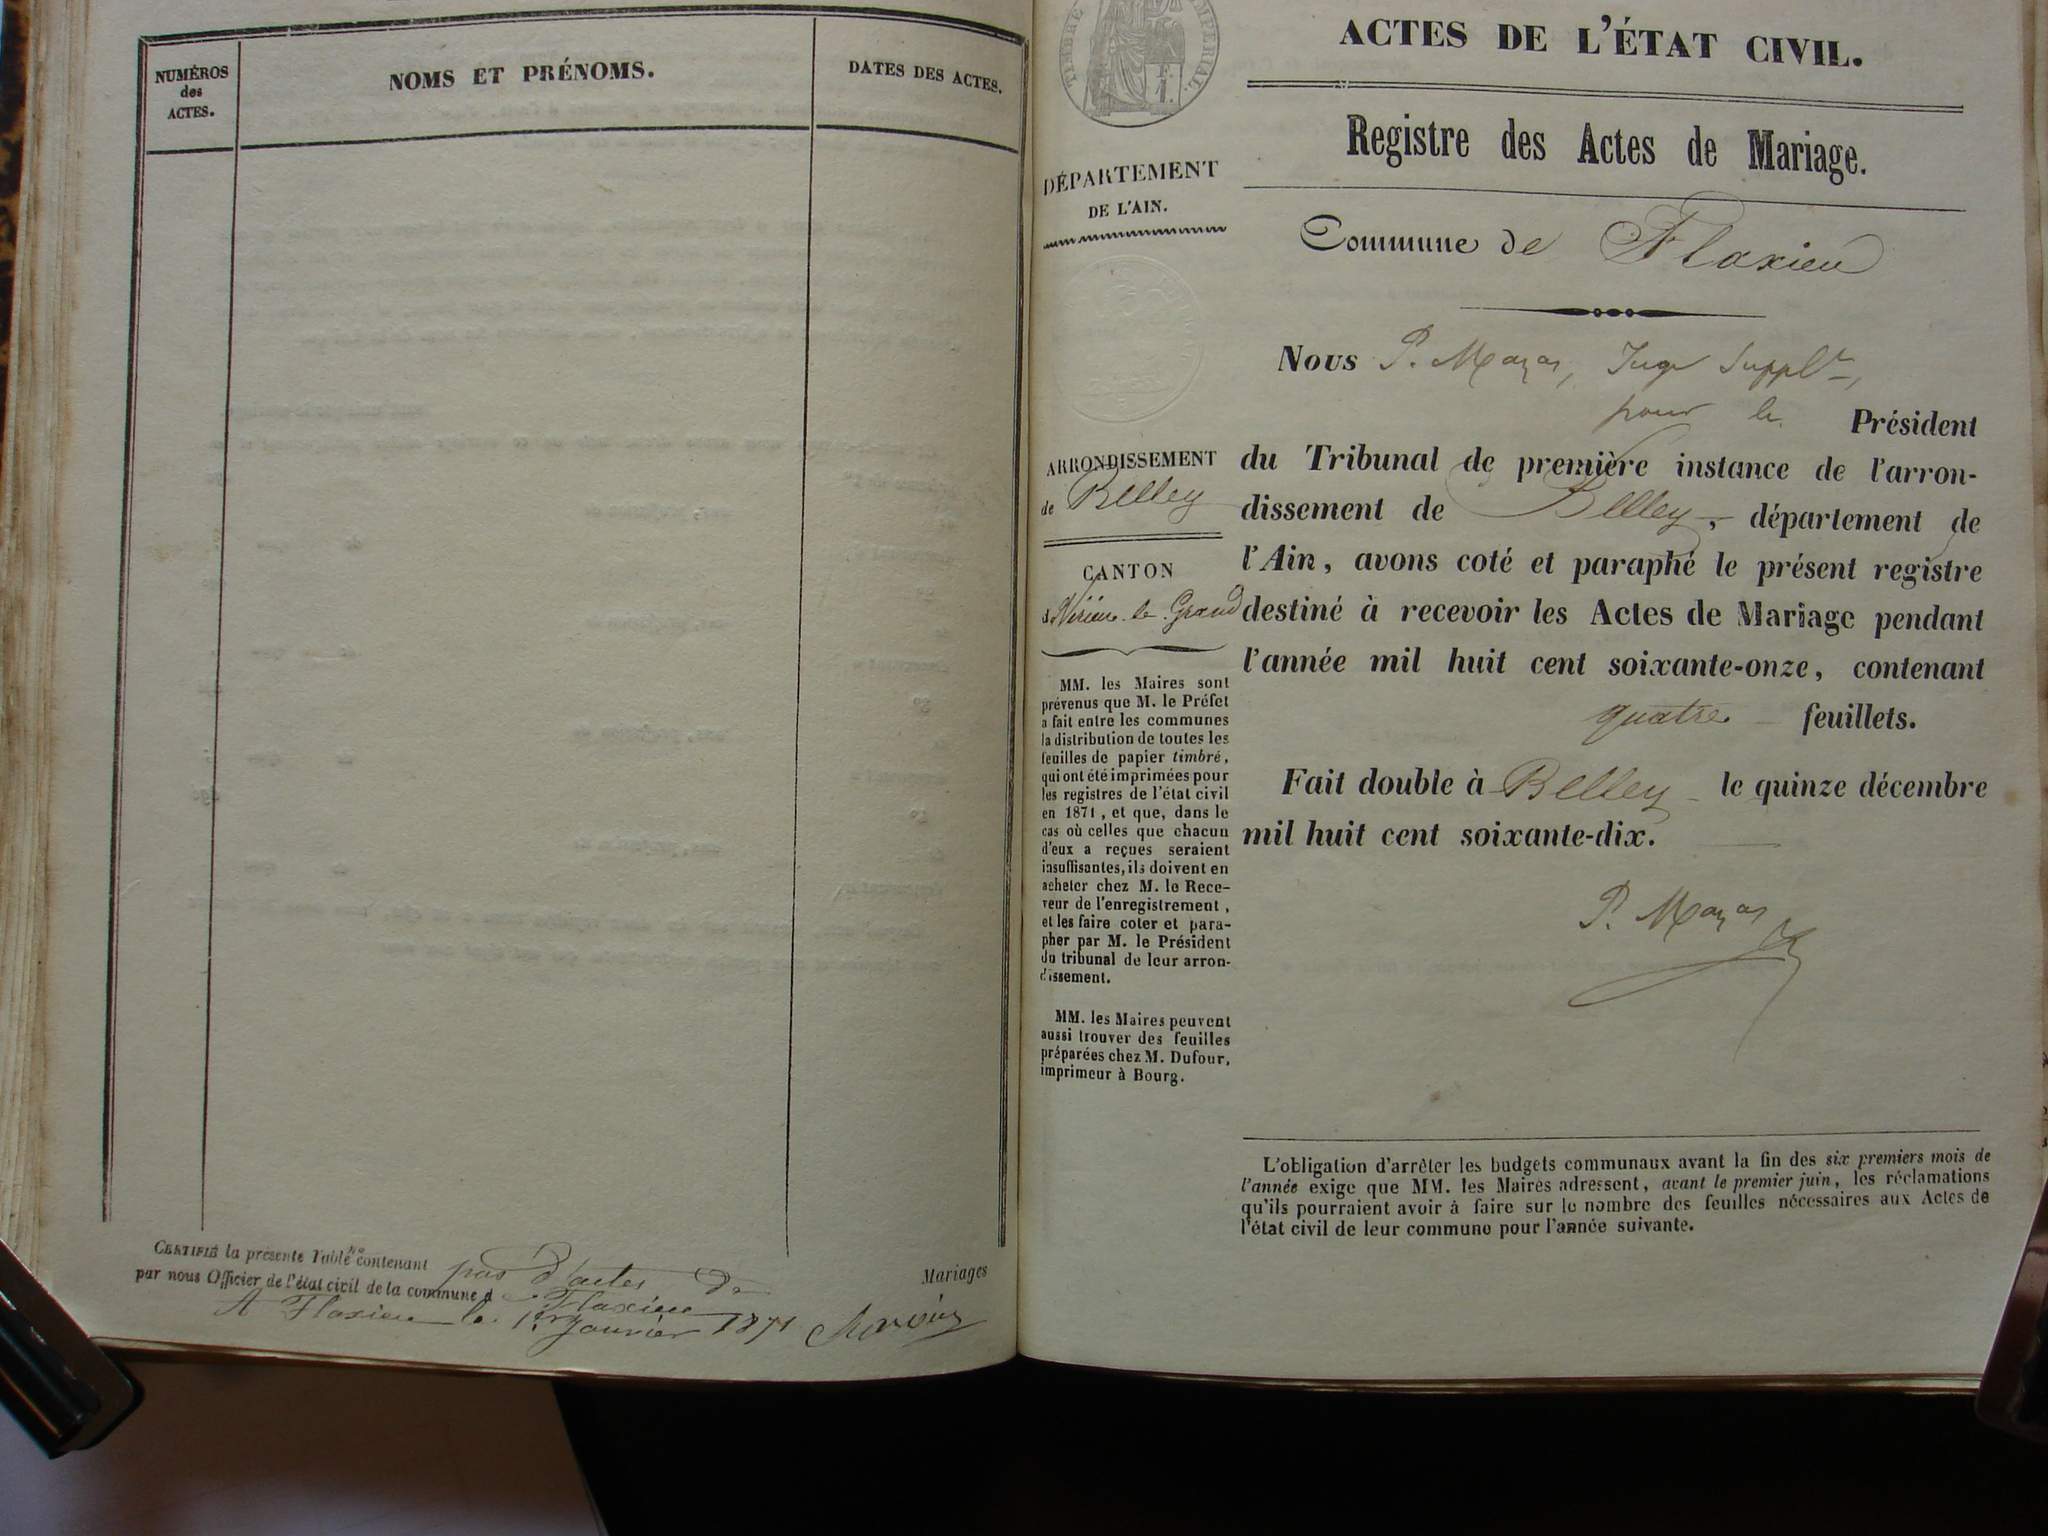 NUMÉROS
des
ACTES.
NOMS ET PRÉNOMS.
DATES DES ACTES.
CERTIFIÉ la présente Table contenant pas d'actes de Mariages
par nous Officier de l'état civil de la commune de Flaxieu
A Flaxieu le 1er janvier 1871
TIMBRE IMPÉRIAL.
DÉPARTEMENT
DE L'AIN.
ARRONDISSEMENT
de Belley
CANTON
de Virieu-le-Grand
MM. les Maires sont
prévenus que M. le Préfet
a fait entre les communes
la distribution de toutes les
feuilles de papier timbré,
qui ont été imprimées pour
les registres de l'état civil
en 1871, et que, dans le
cas où celles que chacun
d'eux a reçues seraient
insuffisantes, ils doivent en
acheter chez M. le Rece-
veur de l'enregistrement,
et les faire coter et para-
pher par M. le Président
du tribunal de leur arron-
dissement.
MM. les Maires peuvent
aussi trouver des feuilles
préparées chez M. Dufour,
imprimeur à Bourg.
ACTES DE L'ÉTAT CIVIL.
Registre des Actes de Mariage.
Commune de Flaxieu
Nous P. Mazas, Juge Supplt,
pour le Président
du Tribunal de première instance de l'arron-
dissement de Belley, département de
l'Ain, avons coté et paraphé le présent registre
destiné à recevoir les Actes de Mariage pendant
l'année mil huit cent soixante-onze, contenant
quatre feuillets.
Fait double à Belley le quinze décembre
mil huit cent soixante-dix.
P. Mazas
L'obligation d'arrêter les budgets communaux avant la fin des six premiers mois de
l'année exige que MM. les Maires adressent, avant le premier juin, les réclamations
qu'ils pourraient avoir à faire sur le nombre des feuilles nécessaires aux Actes de
l'état civil de leur commune pour l'année suivante.